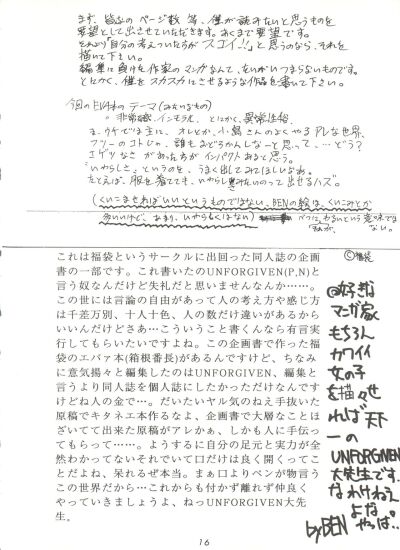 まず、皆さんのページ数 等、僕が読みたいと思うものを
要望として出させていただきます。あくまで要望です。
それより「自分の考えていたもんがスゴイ!!」と思うのなら、それを
描いて下さい。
編集に負ける作家のマンガなんて、たいがいつまらないものです。
とにかく、僕をスカスカにさせるような作品を書いて下さい。
今回のEVA本のテーマ(みたいなもの)
非常識、インモラル、とにかく、異常性格、
フツーのコトじゃ、誰もおどろかんしなーと思って、…どう?
エゲツなさがあった方がインパクトあると思う。
"いやらしさ"というのを、うまく出してみてほしいなあ。
たとえば、服を着てても、いやらしいのって出せるハズ。
(くいこませればいいというものではない、BENの絵は、くいこみとか
多いけど、あまり、いやらしくはない) べつに、わるいという意味では
ない。
これは福袋というサークルに出回った同人誌の企画
書の一部です。これ書いたのUNFORGIVEN(P,N)と
言う奴なんだけど失礼だと思いませんなんか……。
この世には言論の自由があって人の考え方や感じ方
は千差万別、十人十色、人の数だけ違いがあるから
いいんだけどさあ…こういうこと書くんなら有言実
行してもらいたいですよね。この企画書で作った福
袋のエバァ本(箱根番長)があるんですけど、ちなみ
に意気揚々と編集したのはUNFORGIVEN、編集と
言うより同人誌を個人誌にしたかっただけなんです
けどね人の金で…。だいたいヤル気のねえ手抜いた
原稿でキタネエ本作るなよ、企画書で大層なことほ
ざいてて出来た原稿がアレかぁ、しかも人に手伝っ
てもらって……。ようするに自分の足元と実力が全
然わかってないそれでいて口だけは良く開くってこ
とだよね、呆れるぜ本当。まぁ口よりペンが物言う
この世界だから…これからも付かず離れず仲良く
やっていきましょうよ、ねっUNFORGIVEN大先
生。
©福袋
@好きな
マンガ家
もちろん
カワイイ
女の子
を描かせ
れば天下
一の
UNFORGIVEN
大先生です。
なわけねえ
よな
やっぱ..
by BEN
16